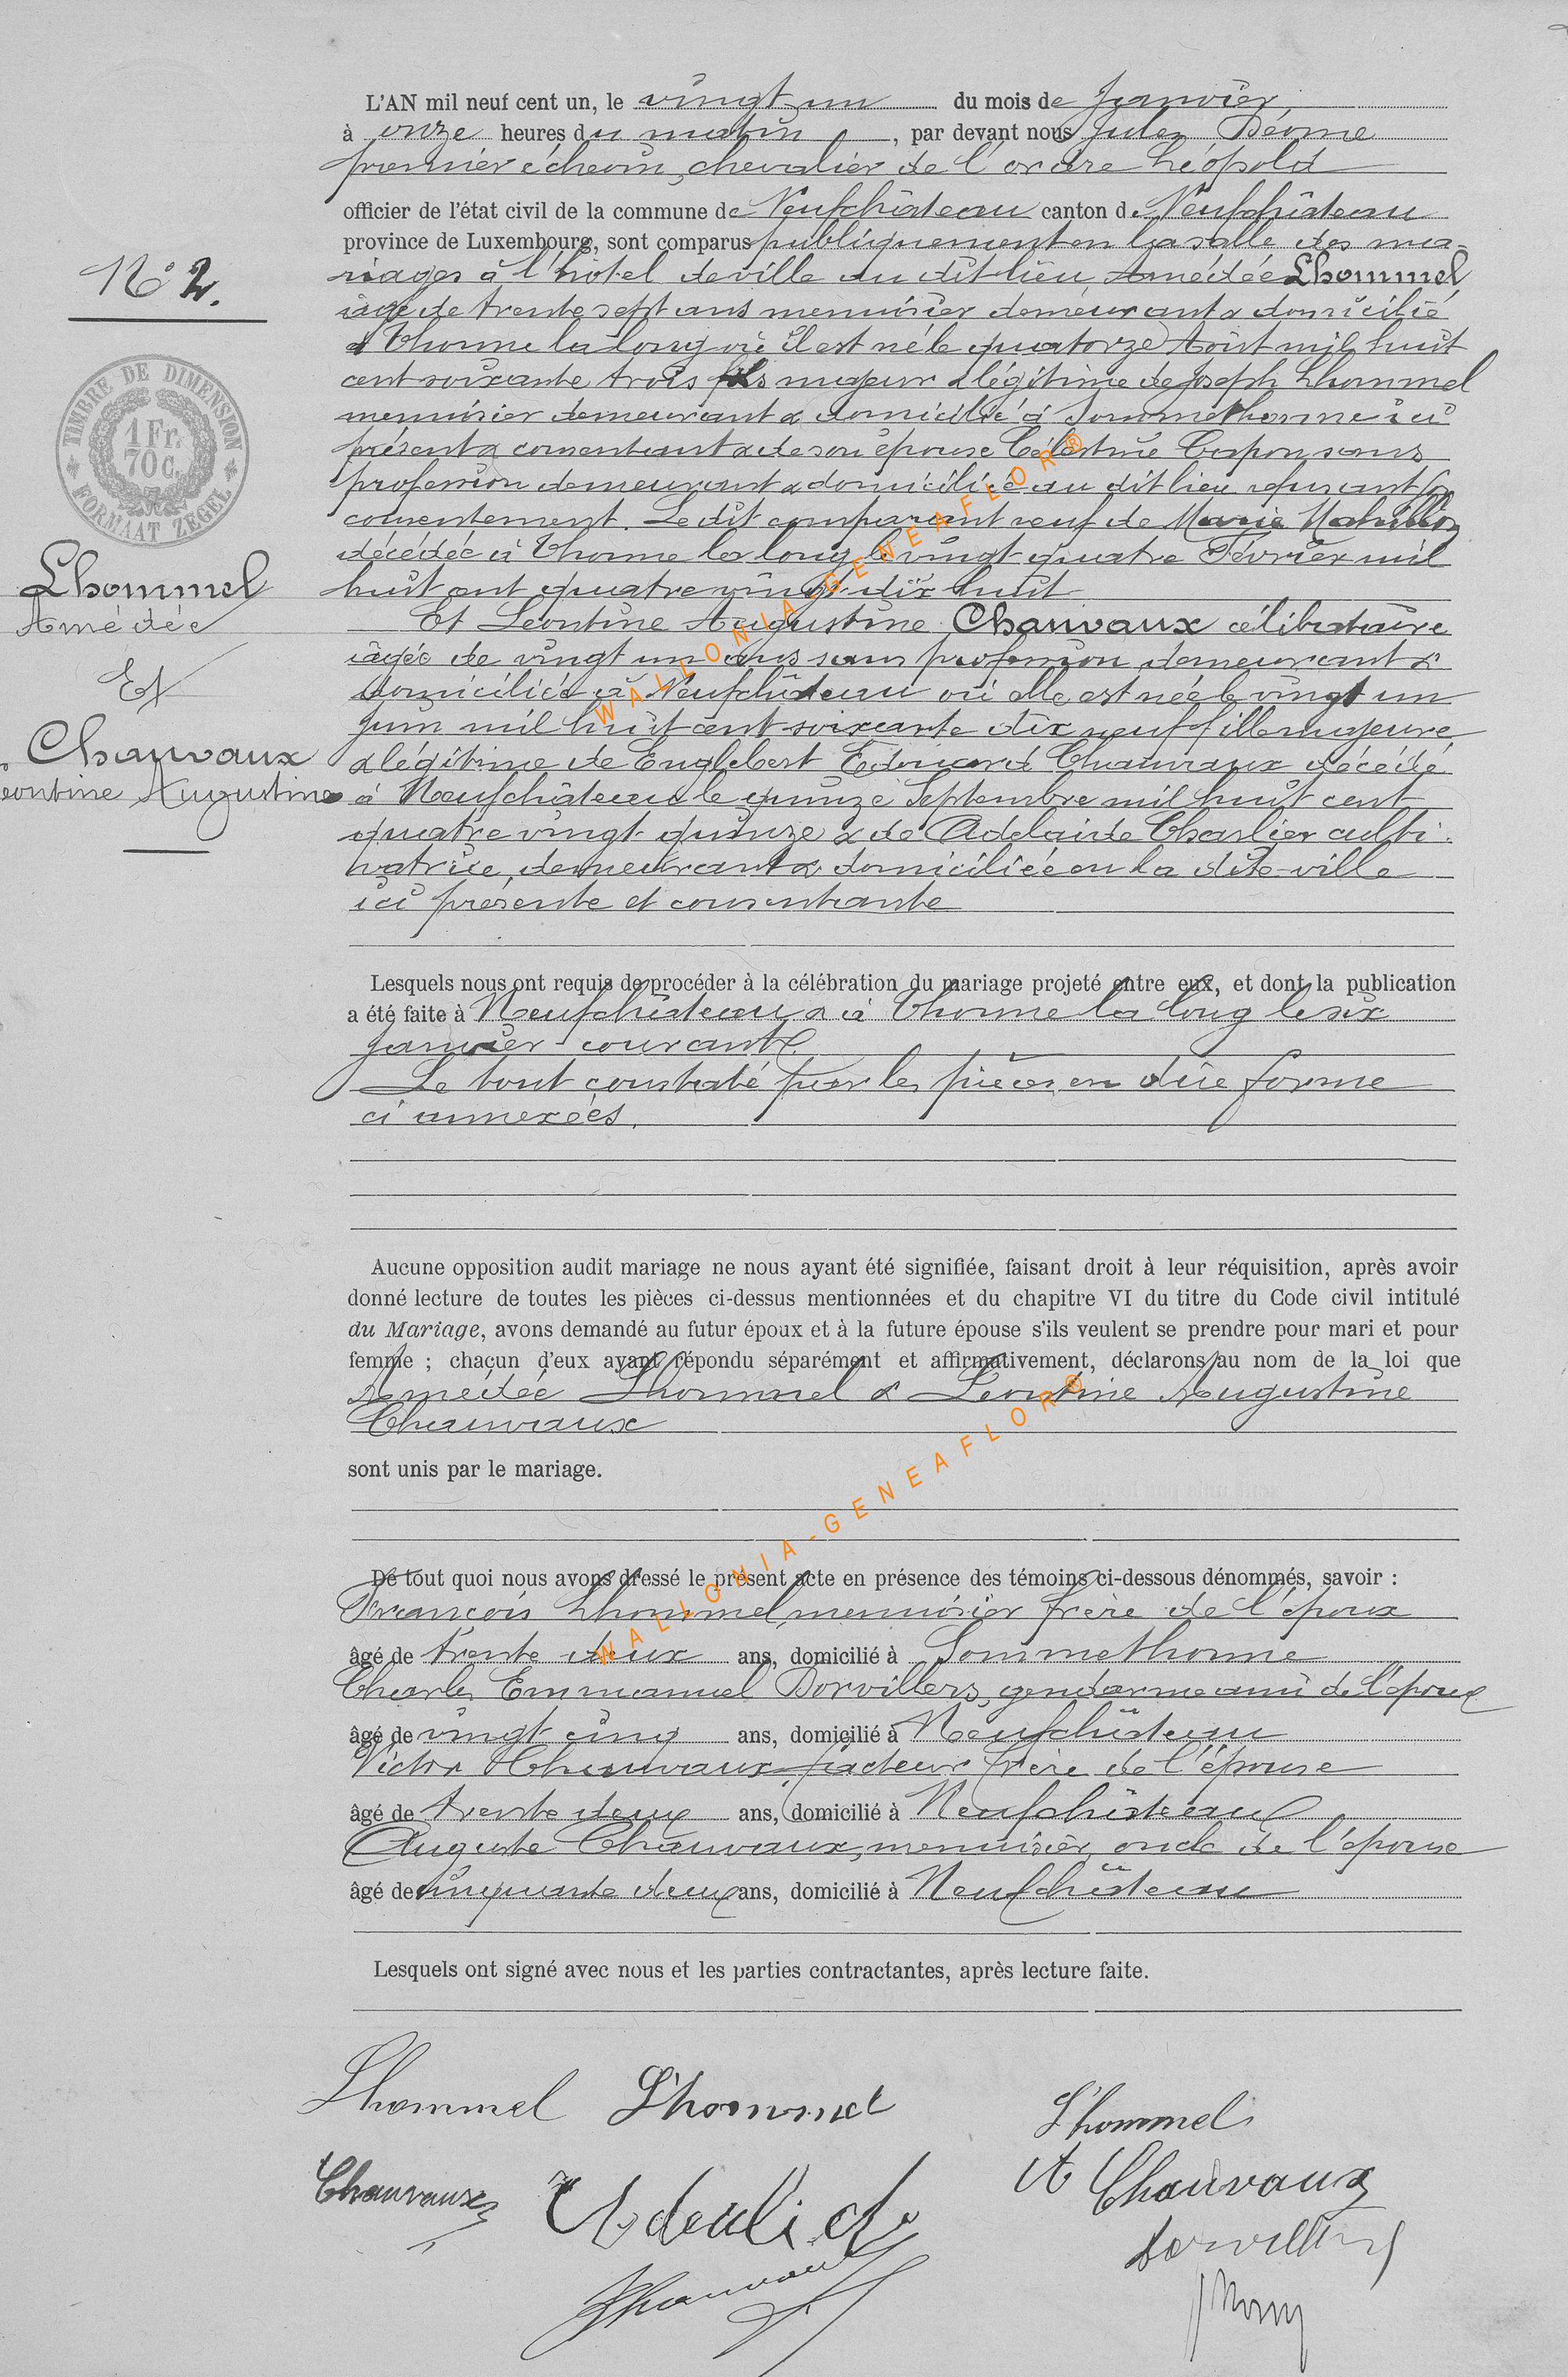 L'AN mil neuf cent un, le vingt un du mois de Janvier,
à onze heures du matin, par devant nous Jules Déome
premier échevin, chevalier de l'ordre Léopold
officier de l'état civil de la commune de Neufchâteau canton de Neufchâteau
province de Luxembourg, sont comparus publiquement en la salle des ma-
riages à l'hôtel de ville du dit lieu Amédée Lhommel,
âgé de trente sept ans menuisier demeurant & domicilié
à Thonne la long où il est né le quatorze Août mil huit
cent soixante trois fils majeur & légitime de Joseph Lhommel
menuisier demeurant & domicilié à Sommethonne ici
présent & consentant & de son épouse Célestine Capon sans
profession demeurant & domiciliée au dit lieu refusant son
consentement. Le dit comparant veuf de Marie Mahillon
décédée à Thonne la long le vingt quatre Février mil
huit cent quatre vingt dix huit
Et Léontine Augustine Chauvaux célibataire
âgée de vingt un ans sans profession demeurant &
domiciliée à Neufchâteau où elle est née le vingt un
Juin mil huit cent soixante dix neuf fille majeure
& légitime de Englebert Edouard Chauvaux décédé
à Neufchâteau le quinze Septembre mil huit cent
quatre vingt quinze & de Adelaide Charlier culti-
vatrice, demeurant & domiciliée en la dite ville
ici présente et consentante
No 2.
TIMBRE DE DIMENSION
1 Fr.
70 C.
FORMAAT ZEGEL
Lhommel
Amédée
Et
Chauvaux
Léontine Augustine
Lesquels nous ont requis de procéder à la célébration du mariage projeté entre eux, et dont la publication
a été faite à Neufchâteau & à Thonne la long le six
janvier courant.
Le tout constaté par les pièces en due forme
ci annexées.
Aucune opposition audit mariage ne nous ayant été signifiée, faisant droit à leur réquisition, après avoir
donné lecture de toutes les pièces ci-dessus mentionnées et du chapitre VI du titre du Code civil intitulé
du Mariage, avons demandé au futur époux et à la future épouse s'ils veulent se prendre pour mari et pour
femme ; chacun d'eux ayant répondu séparément et affirmativement, déclarons au nom de la loi que
Amédée Lhommel & Léontine Augustine
Chauvaux
sont unis par le mariage.
De tout quoi nous avons dressé le présent acte en présence des témoins ci-dessous dénommés, savoir :
François Lhommel, menuisier frère de l'époux
âgé de trente deux ans, domicilié à Sommethonne
Charles Emmanuel Dorvillers, gendarme ami de l'époux
âgé de vingt cinq ans, domicilié à Neufchâteau
Victor Chauvaux facteur frère de l'épouse
âgé de trente deux ans, domicilié à Neufchâteau
Auguste Chauvaux, menuisier, oncle de l'épouse
âgé de cinquante deux ans, domicilié à Neufchâteau
Lesquels ont signé avec nous et les parties contractantes, après lecture faite.
Lhommel L'hommel L'hommel
Chauvaux A Chauvaux
Dorvillers
Chauvaux
WALLONIA-GENEAFLOR®
WALLONIA-GENEAFLOR®